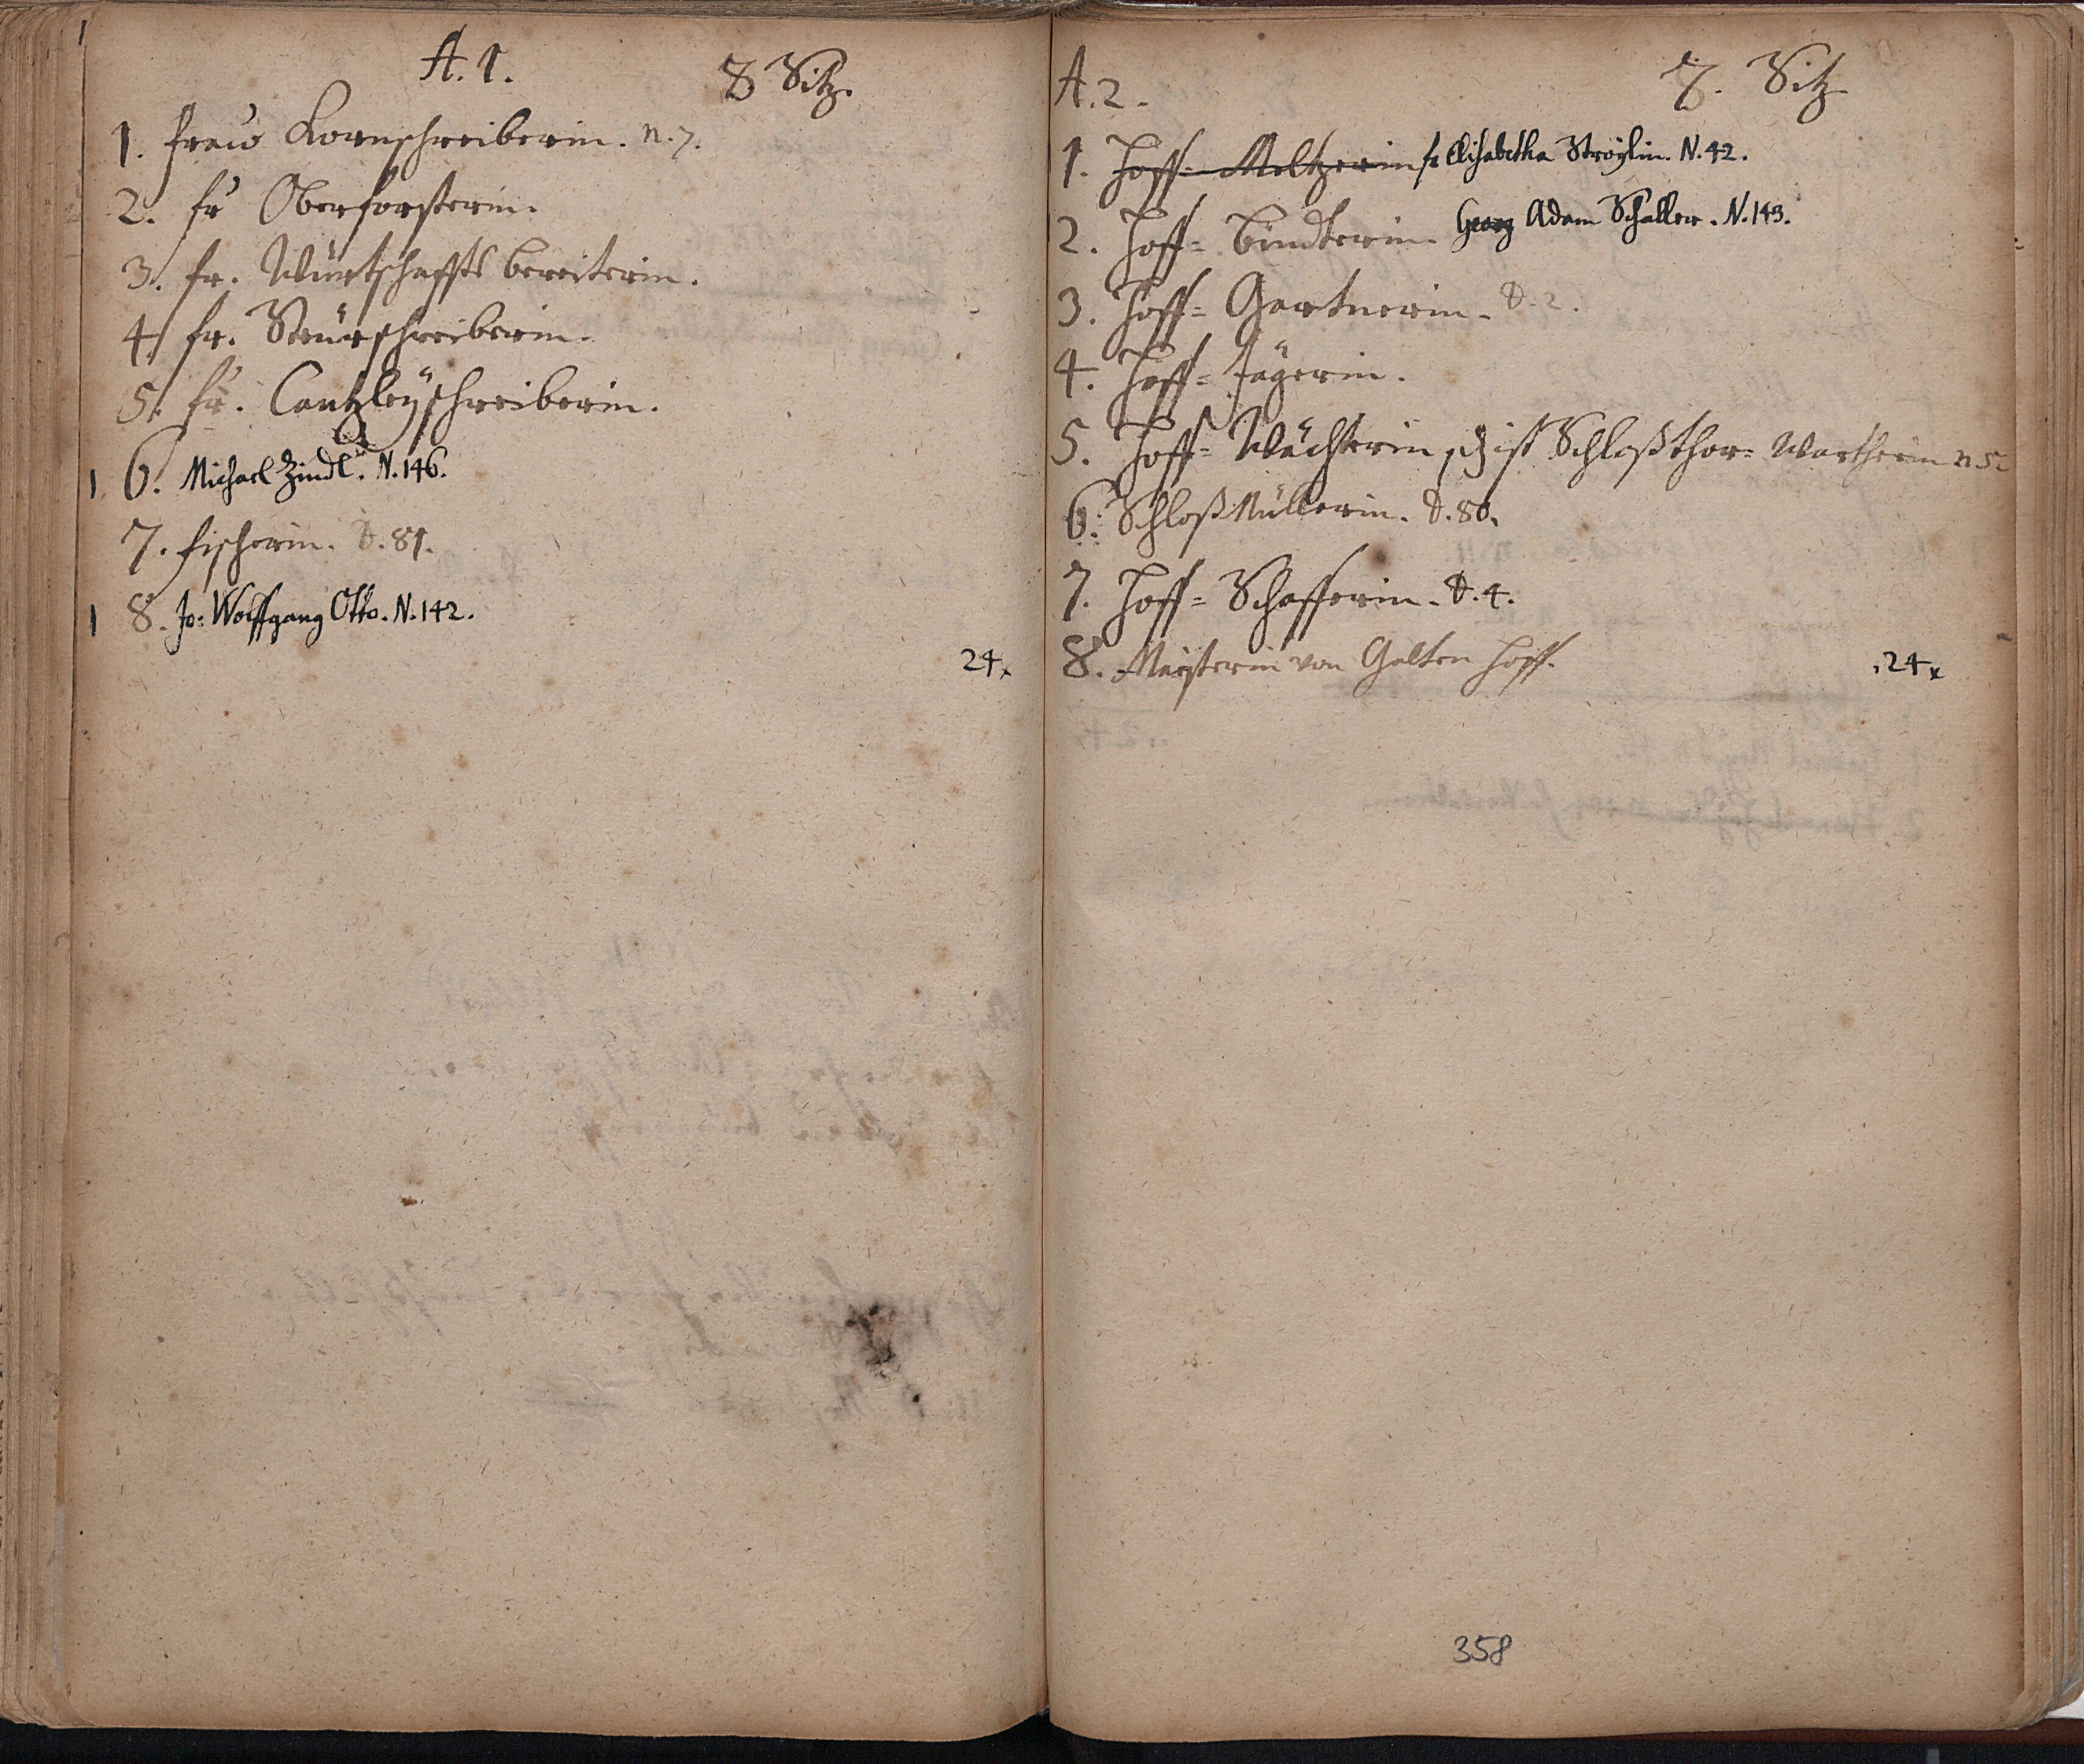 A. 1. 8 Sitz.
1. Fraw Kornschreiberin. N. 7.
2. fr Oberforsterin.
3. fr. Würtschaffts bereiterin.
4. fr. Steürschreiberin.
5. fr. Cantzleÿschreiberin.
1 6. Michael Zindl. N. 146.
7. fischerin. D. 81.
1 8. Jo: Wolffgang Otto. N. 142.
24x
A. 2. 7. Sitz
1. Hoff= Meltzerin fr Elisabetha Ströylin. N. 42.
2. Hoff= Bindterin. Georg Adam Schaller. N. 143.
3. Hoff= Gartnerin. D. 2.
4. Hoff= Jägerin.
5. Hoff= Wächterin, ist Schloßthor= Wartherin n 5.
6. Schloß Müllerin. D. 80.
7. Hoff= Schafferin. D. 4.
8. Maÿsterin von Galten Hoff.
24x
358